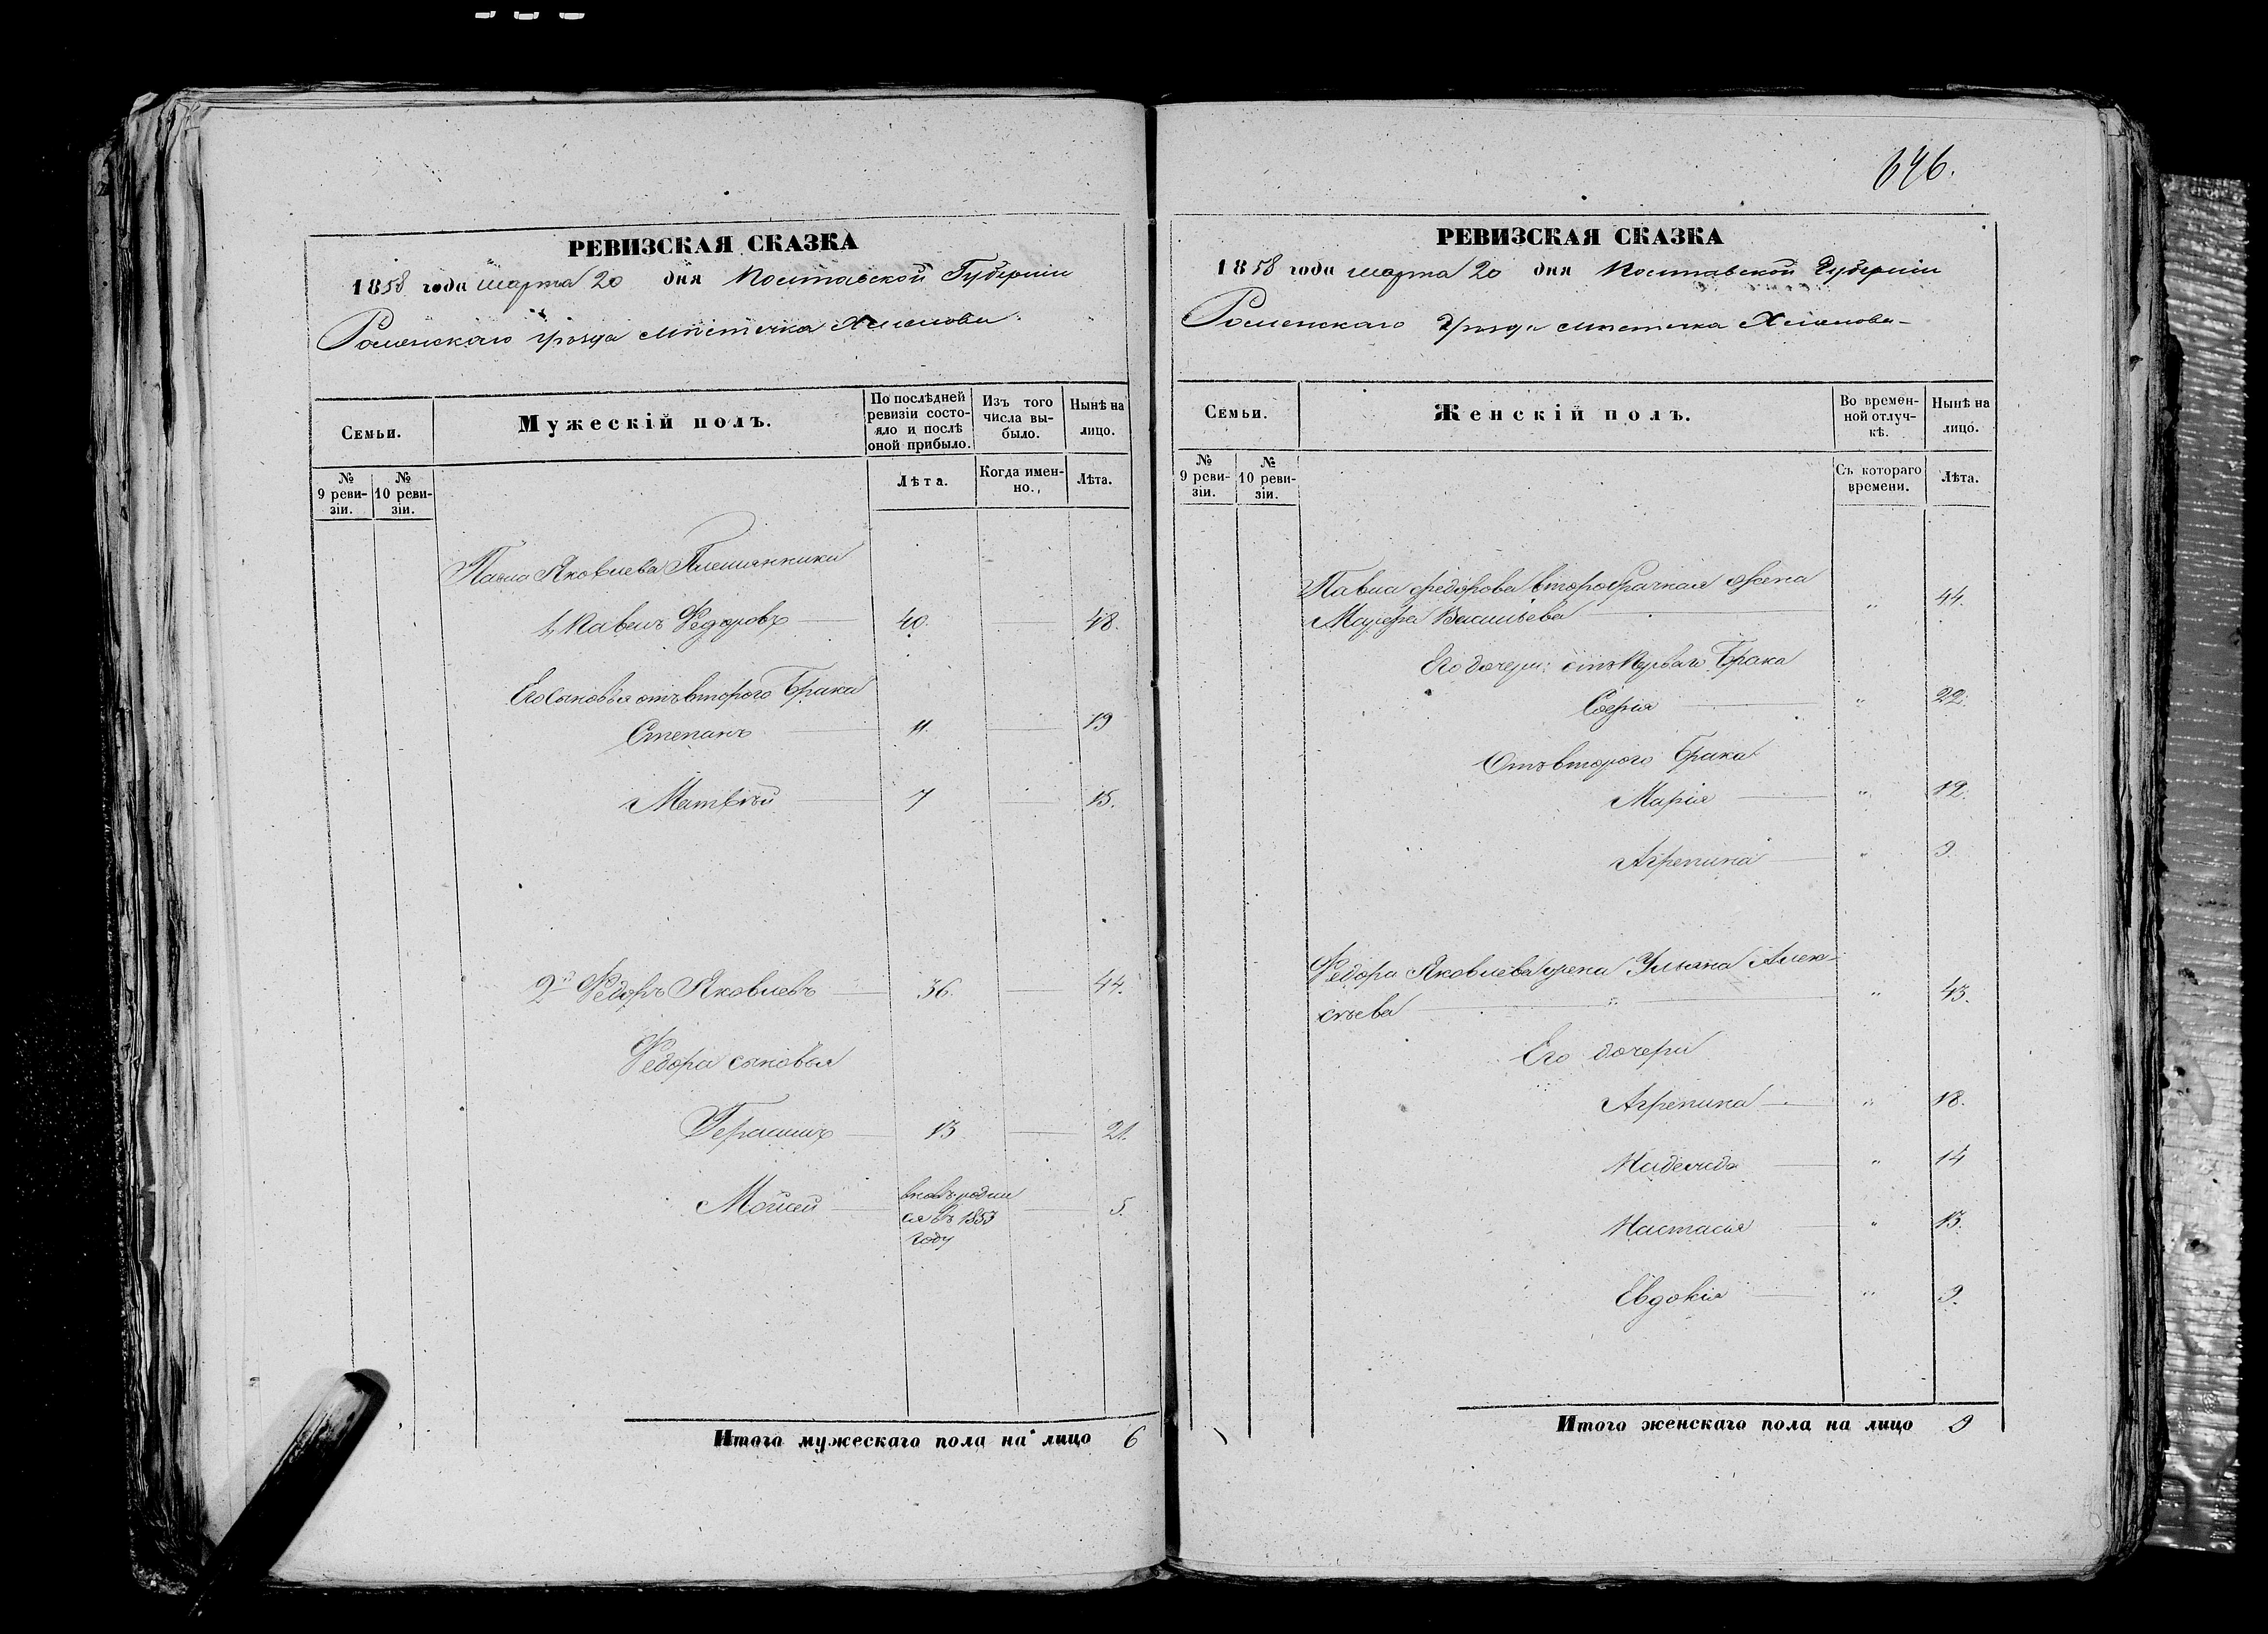 646.
РЕВИЗСКАЯ СКАЗКА
1858 года марта 20 дня Полтавской Губерніи
Роменскаго уѣзда мѣстечка Хмѣлова
Семьи.
Мужескій полъ.
По послѣдней ревизіи состояло и послѣ оной прибыло.
Изъ того числа выбыло.
Нынѣ на лицо.
№ 9 ревизіи.
№ 10 ревизіи.
Лѣта.
Когда именно.
Лѣта.
Павла Яковлева Племянники
1, Павелъ Федоровъ 40. 48.
Его сыновья отъ второго брака
Степанъ 11. 19
Матвѣй 7 15.
2й Федоръ Яковлевъ 36. 44.
Федора сыновья
Герасимъ 13 21.
Мойсей вновь родил 5.
ся въ 1853
году
Итого мужескаго пола на лицо 6
РЕВИЗСКАЯ СКАЗКА
1858 года марта 20 дня Полтавской Губерніи
Роменскаго уѣзда мѣстечка Хмѣлова
Семьи.
Женскій полъ.
Во временной отлучкѣ.
Нынѣ на лицо.
№ 9 ревизіи.
№ 10 ревизіи.
Съ котораго времени.
Лѣта.
Павла Федорова второбрачная жена
Васильева " 44.
Его дочери: отъ Перваго брака
Софія " 22.
Отъ второго брака
Марія " 12.
Агрепина " 9.
Федора Яковлева жена Ульяна Алек-
сѣева " 43.
Его дочери
Агрепина " 18.
Надежда " 14
Настасія " 13.
Евдокія " 9.
Итого женскаго пола на лицо 9